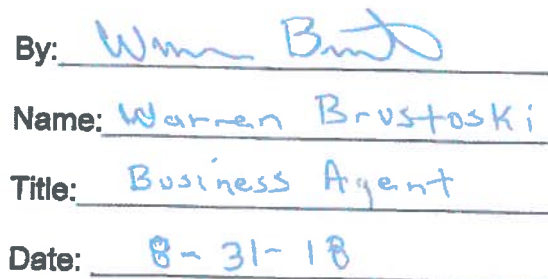 By:
Name: Warren Brustoski
Title: Business Agent
Date: 8-31-18